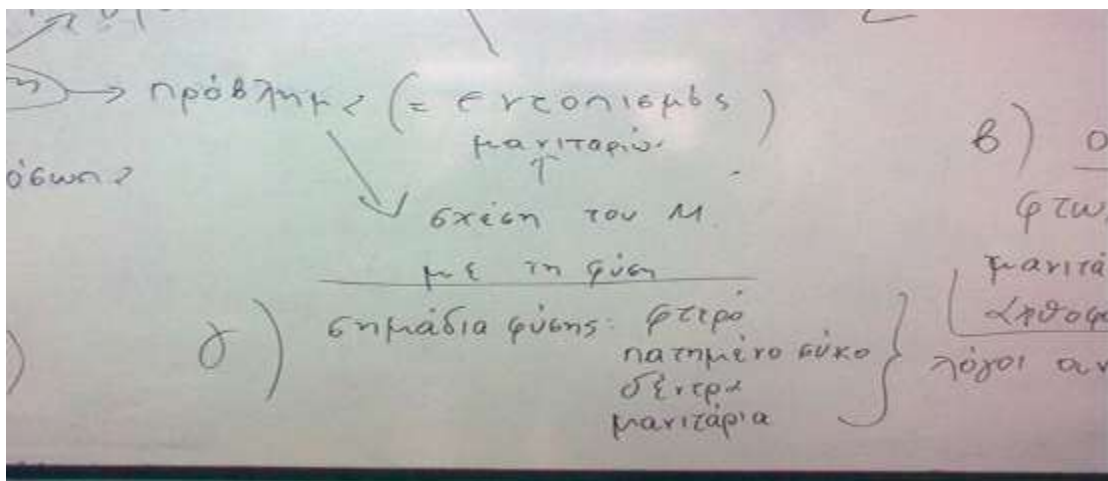 πρόβλημα (= εντοπισμός
μανιταριών)
σχέση του Μ.
με τη φύση
γ) σημάδια φύσης: φτερό
πατημένο σύκο
δέντρα
μανιτάρια
β)
λόγοι